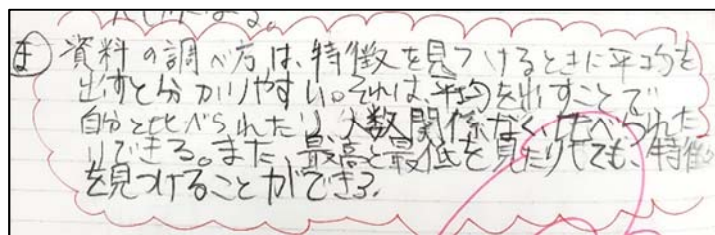 ま 資料の調べ方は、特徴を見つけるときに平均を
出すと分かりやすい。それは、平均を出すことで
自分と比べられたり、人数関係なく、比べられた
りできる。また、最高と最低を見たりしても、特徴
を見つけることができる。